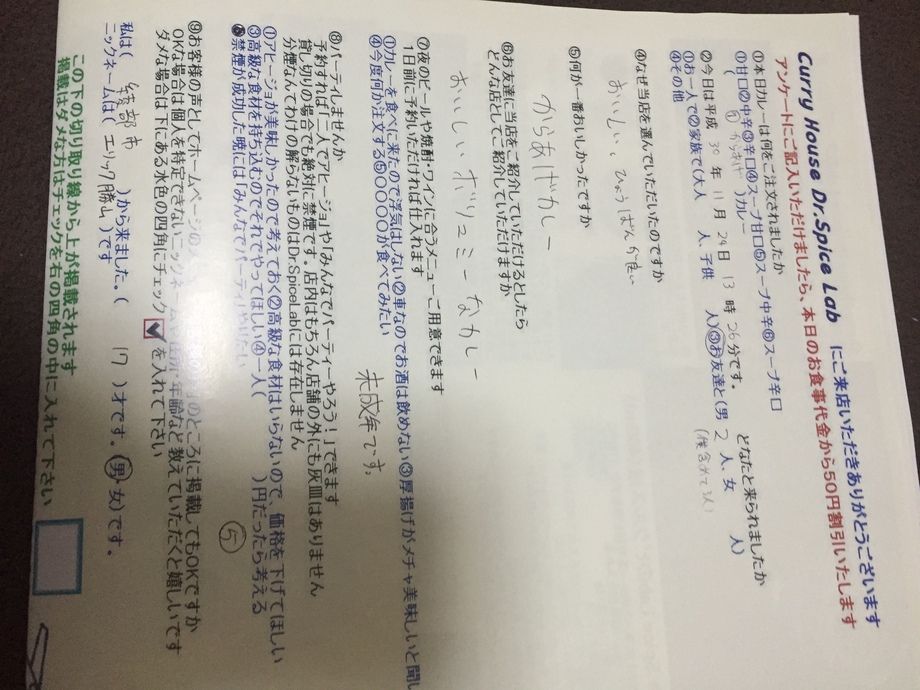 Curry House Dr.Spice Lab にご来店いただきありがとうございます
アンケートにご記入いただけましたら、本日のお食事代金から50円割引いたします
①本日カレーは何をご注文されましたか
①甘口②中辛③辛口④スープ甘口⑤スープ中辛⑥スープ辛口
( からあげ )カレー
②今日は平成 30 年 11 月 24 日 13 時 26 分です。 どなたと来られましたか
①お一人で②家族で(大人 人、子供 人)③お友達と(男 2 人、女 人)
④その他
(僕含めて3人)
④なぜ当店を選んでいただいたのですか
おいしい、ひょうばんが良い
⑤何が一番おいしかったですか
からあげカレー
⑥お友達に当店をご紹介していただけるとしたら
どんな店としてご紹介していただけますか
おいしいボリュミーなカレー
⑦夜のビールや焼酎・ワインに合うメニューご用意できます
1日前に予約いただければ仕入れます
①カレーを食べに来たので浮気はしない②車なのでお酒は飲めない③厚揚げがメチャ美味しいと聞い
④今度何か注文する⑤〇〇〇〇が食べてみたい
未成年です。
⑧パーティしませんか
予約すれば「二人でアヒージョ」や「みんなでパーティーやろう!」できます
貸し切りの場合でも絶対に禁煙です。店内はもちろん店舗の外にも灰皿はありません
分煙なんてわけの解らないものはDr.SpiceLabには存在しません
①アヒージョが美味しかったので考えておく②高級な食材はいらないので、価格を下げてほしい
③高級な食材を持ち込むのでそれでやってほしい④一人( )円だったら考える
禁煙が成功した暁には「みんなでパーティ」やりたい
⑤
⑨お客様の声としてホームページの のところに掲載してもOKですか
OKな場合は個人を特定できないニックネームや住所、年齢など教えていただくと嬉しいです
ダメな場合は下にある水色の四角にチェック☑を入れて下さい
私は( 綾部市 )から来ました。( 17 )才です。(男・女)です。
ニックネームは( エリック勝山 )です
この下の切り取り線から上が掲載されます
掲載はダメな方はチェックを右の四角の中に入れて下さい